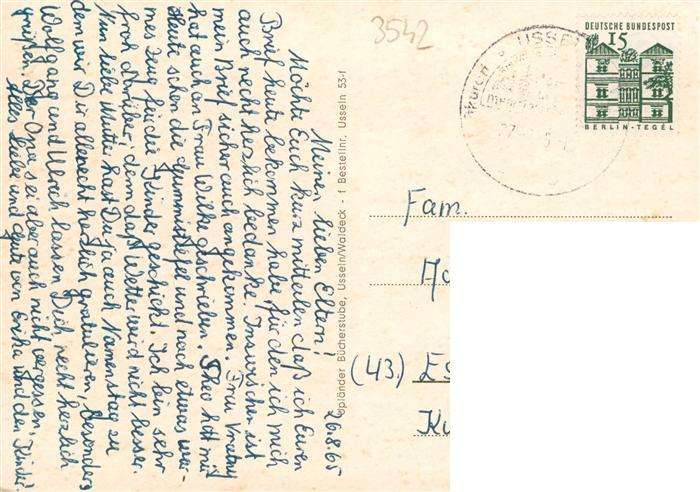 3542
USSELN
DEUTSCHE BUNDESPOST
15
BERLIN-TEGEL
26.8.65
Meine lieben Eltern!
Möchte Euch kurz mitteilen daß ich Euren
Brief heute bekommen habe, für den ich mich
auch recht herzlich bedanke. Inzwischen ist
mein Brief sicher auch angekommen. Frau
hat auch an Frau Wilke geschrieben. Theo hat mir
Heute schon die Gummistiefel und noch etwas war-
mes Zeug für die Kinder geschickt. Ich bin sehr
froh darüber, denn daß Wetter wird nicht besser.
liebe Mutter hast Du ja auch Namenstag zu
dem wir Dir allerseits herzlich gratulieren, besonders
Wolfgang und Ulrich lassen Dich recht herzlich
grüßen. Der Opa sei aber auch nicht vergessen.
Alles Liebe und Gute von Erika und den Kinder.
Upländer Bücherstube, Usseln/Waldeck - f Bestellnr. Usseln 53-f
Fam.
(43) Es